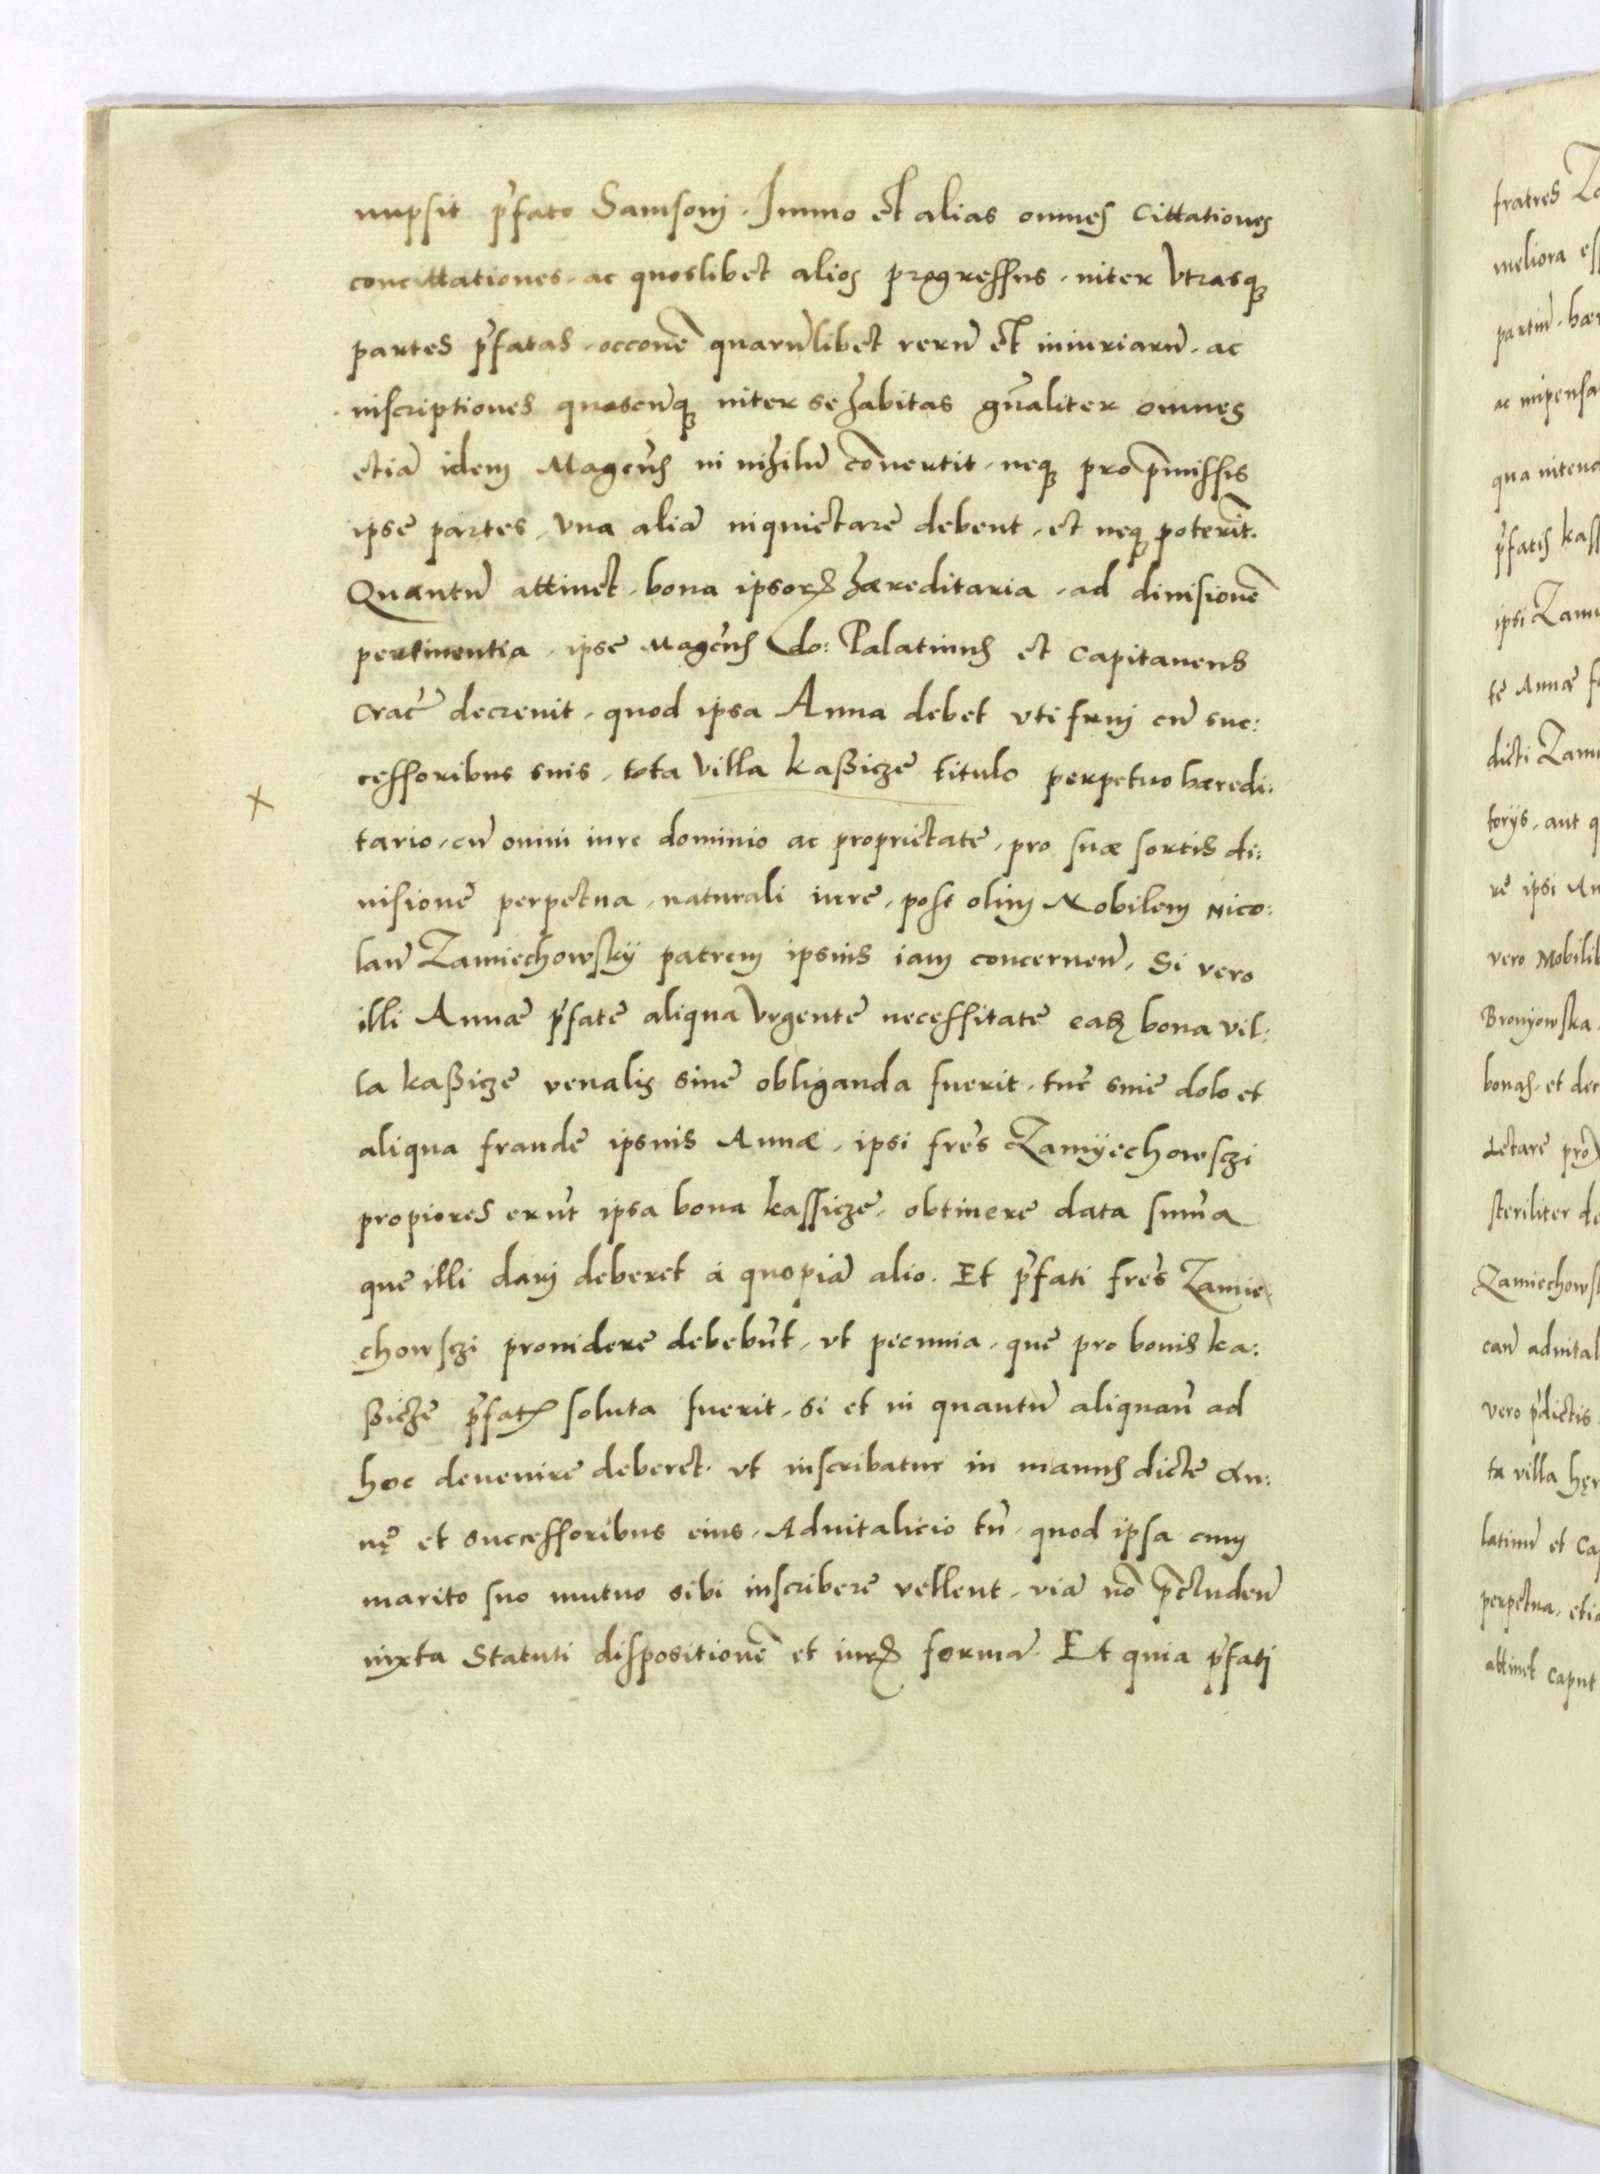 nupsit p̃fato Samsonj. Immo et alias omnes Cittationes
concittationes. ac quoslibet alios progressus. inter vtrasq3
partes p̃fatas. occone͂ quarũlibet rerũ et iniuriarũ. ac
inscriptiones quascũq3 inter se habitas gñaliter omnes
etiã idem Magcũs in nihilũ cõuertit. neq3 pro p̃missis
ipse partes, vna aliã inquietare debent, et neq3 poterĩt.
Quantũ attinet. bona ipsorꝝ hæreditaria. ad diuisionẽ
pertinentia. ipse Magcũs do: Palatinus et Capitaneus
Crac̃ decreuit. quod ipsa Anna debet vti fruj cũ suc:
cessoribus suis. tota villa kaßicze titulo perpetuo hæredi:
tario, cũ omni iure dominio ac proprietate, pro suæ sortis di:
uisione perpetua, naturali iure, post olim Nobilem Nico:
laũ Zamiechowskÿ patrem ipsius iam concernen̄. Si vero
illi Annæ p̃fate aliqua vrgente necessitate eadẽ bona vil:
la kaßicze venalis siue obliganda fuerit. tũc sine dolo et
aliqua fraude ipsius Annæ. ipsi frẽs Zamÿechowsczi
propiores erũt ipsa bona kassicze. obtinere data sum̃a
que illi darj deberet à quopiã alio. Et p̃fati frẽs Zamie
chowsczi prouidere debebũt. vt pecunia. que pro bonis ka:
ßicze p̃fatꝝ soluta fuerit. si et in quantũ aliquañ ad
hoc deuenire deberet. vt inscribatur in manus dicte An:
nę et successoribus eius. Aduitalicio tñ. quod ipsa cum
marito suo mutuo sibi inscribere vellent. viã nõ p̃cluden̄
iuxta Statuti dispositionẽ et iurꝝ formã. Et quia p̃fatj
fratres Za
meliora ess
partiũ. hær
ac impensa
p̃fatis kass
ipsi Zami
te Annæ
dicti Zami
torÿs, aut q
re ipsi An
vero Mobilib
Bronÿowska.
bonas. et dec
steriliter de
Zamiechows
vero p̃dictis
ta villa hęr
latinũ et Ca
perpetua, etia
attinet Caput